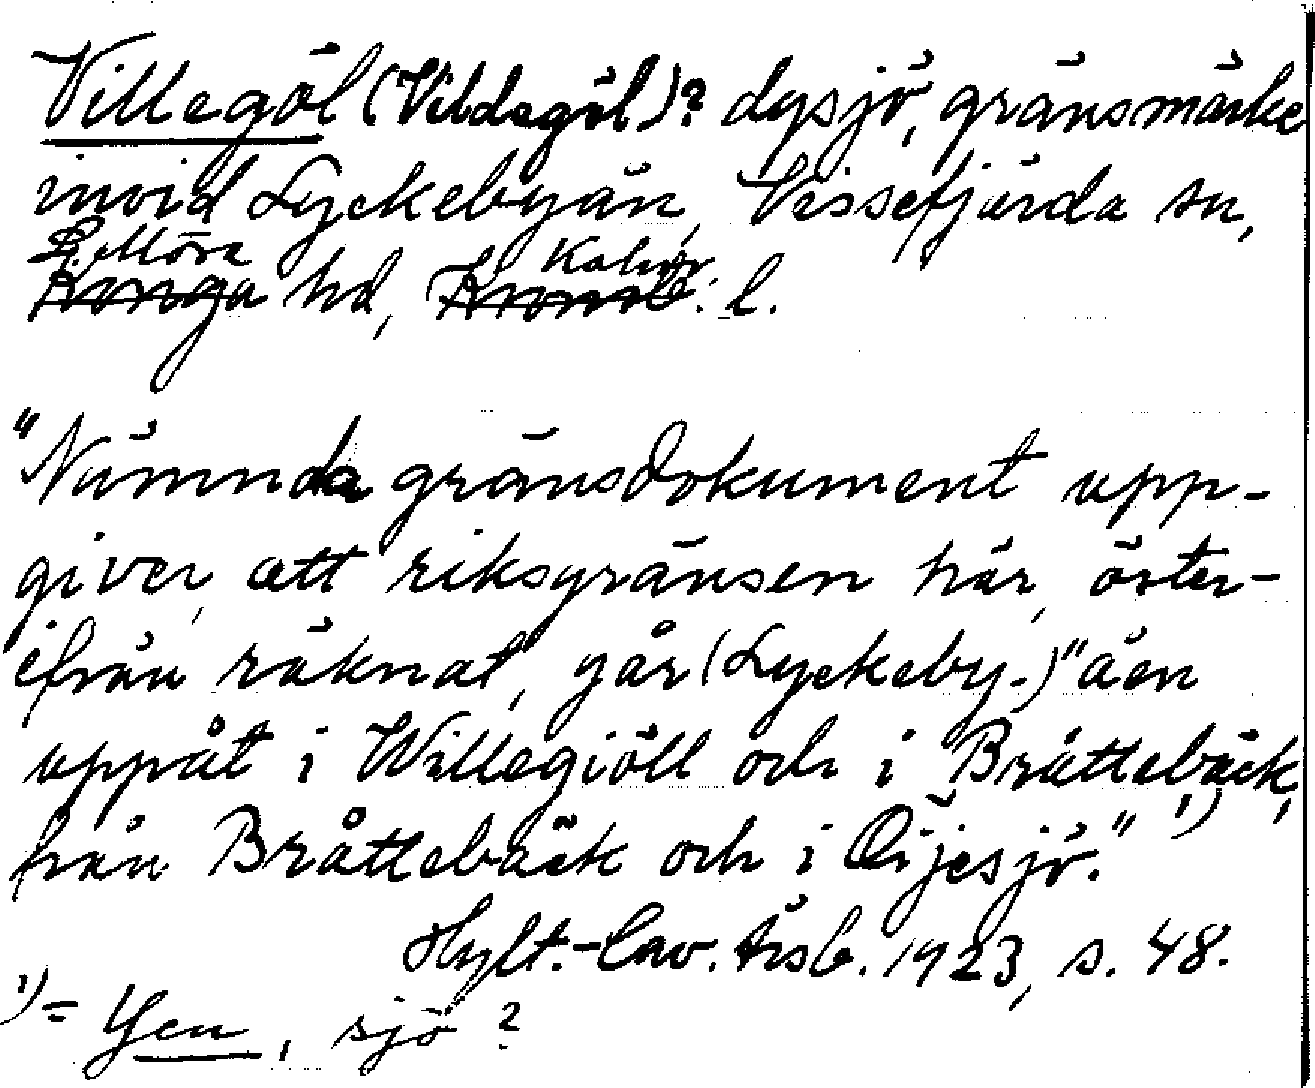 Villegöl (Vildegöl)? dysjö, gränsmärke
invid Lyckebyån, Vissefjärda sn,
S. Möre Kalmar
Konga hd, Kronob. l.
"Nämnda gränsdokument upp-
giver, att riksgränsen här, öster-
ifrån räknat, går (Lyckeby-)"åen
uppåt i Willegiöll och i Bråttebäck,
från Bråttebäck och i Öijesjö." 1)
Hylt.-Cav. Årsb. 1923, s. 48.
1) = Yen, sjö ?